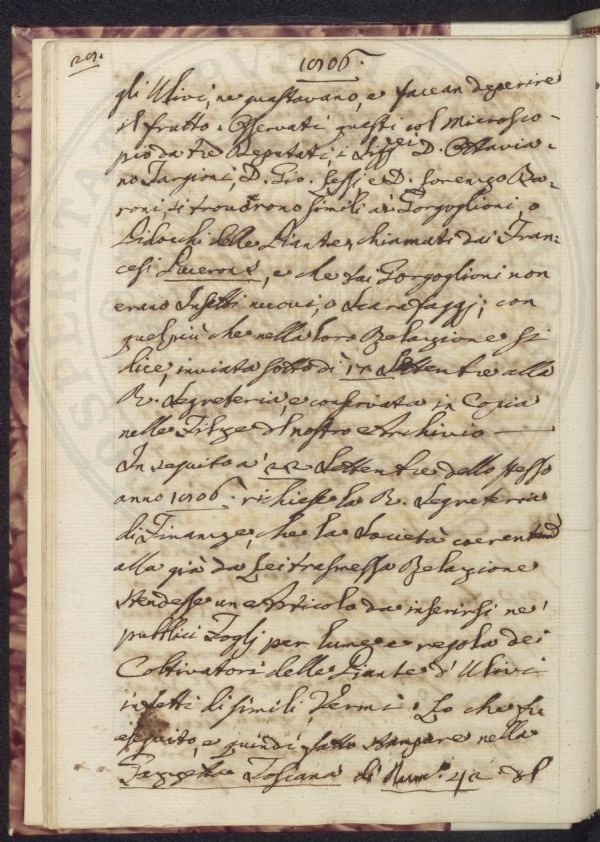 201.
1786.
gli Ulivi, ne guastavano, e facean deperire
il frutto. Osservati questi col Microsco-
pio da tre Deputati, i Sigg.ri D. Ottavia-
no Targioni, D. Gio. Lessi, e D. Lorenzo Ba-
roni, si trovarono simili ai Gorgoglioni, o
Pidocchi delle Piante, chiamati dai Fran-
cesi Pucerons, e che tai Gorgoglioni non
erano Insetti nuovi, o Scarafaggj, con
quel più che nella loro Relazione si
dice, inviata sotto dì 17 Settembre alla
R. Segreteria, e conservata in Copia
nelle Filze del nostro Archivio
In seguito a' 22 Settembre dello stesso
anno 1786. richiese la R. Segreteria
di Finanze, che la Società coerentemte
alla già da Lei trasmessa Relazione
stendesse un Articolo da inserirsi ne'
pubblici Foglj per lume e regola dei
Coltivatori delle Piante d'Ulivi
infetti di simili Vermi. Lo che fu
eseguito, e quindi fatto stampare nella
Gazzetta Toscana di Num.o 40 del